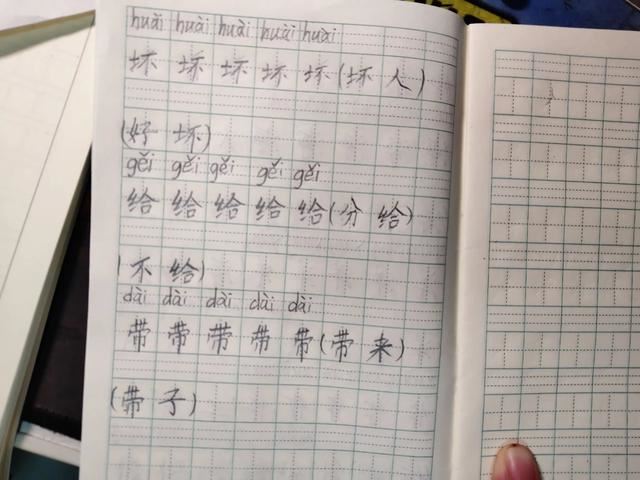 huài huài huài huài huài
坏 坏 坏 坏 坏(坏 人)
(好 坏)
gěi gěi gěi gěi gěi
给 给 给 给 给(分 给)
(不 给)
dài dài dài dài dài
带 带 带 带 带(带 来)
(带 子)